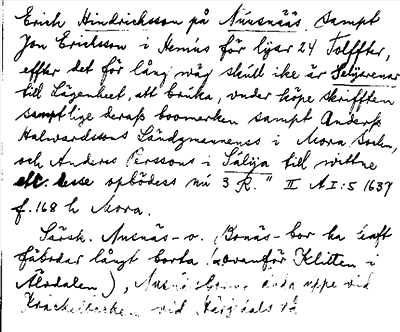 Erich Hindricksson på Nusnäås sampt
Jon Ericksson i Hemus för lijser 24 Tolffter,
effter det för lång wäg skull ike är Selijærenar
till Lägenheet, att bruka, vnder köpe skrifften
samptlige deras boomerken sampt Anders
Halwardssons Ländzmannenss i Mora Sochn,
och Anders Perssons i Sälija till wittne
etc. desse opbödess nu 3 R." II A I:5 1637
f. 168 h Mora.
Särsk. Nusnäs- o. Bonäs-bor ha haft
fäbodar långt borta ovanför Klitten i
Älvdalen), ända uppe vid
vid Härjedals